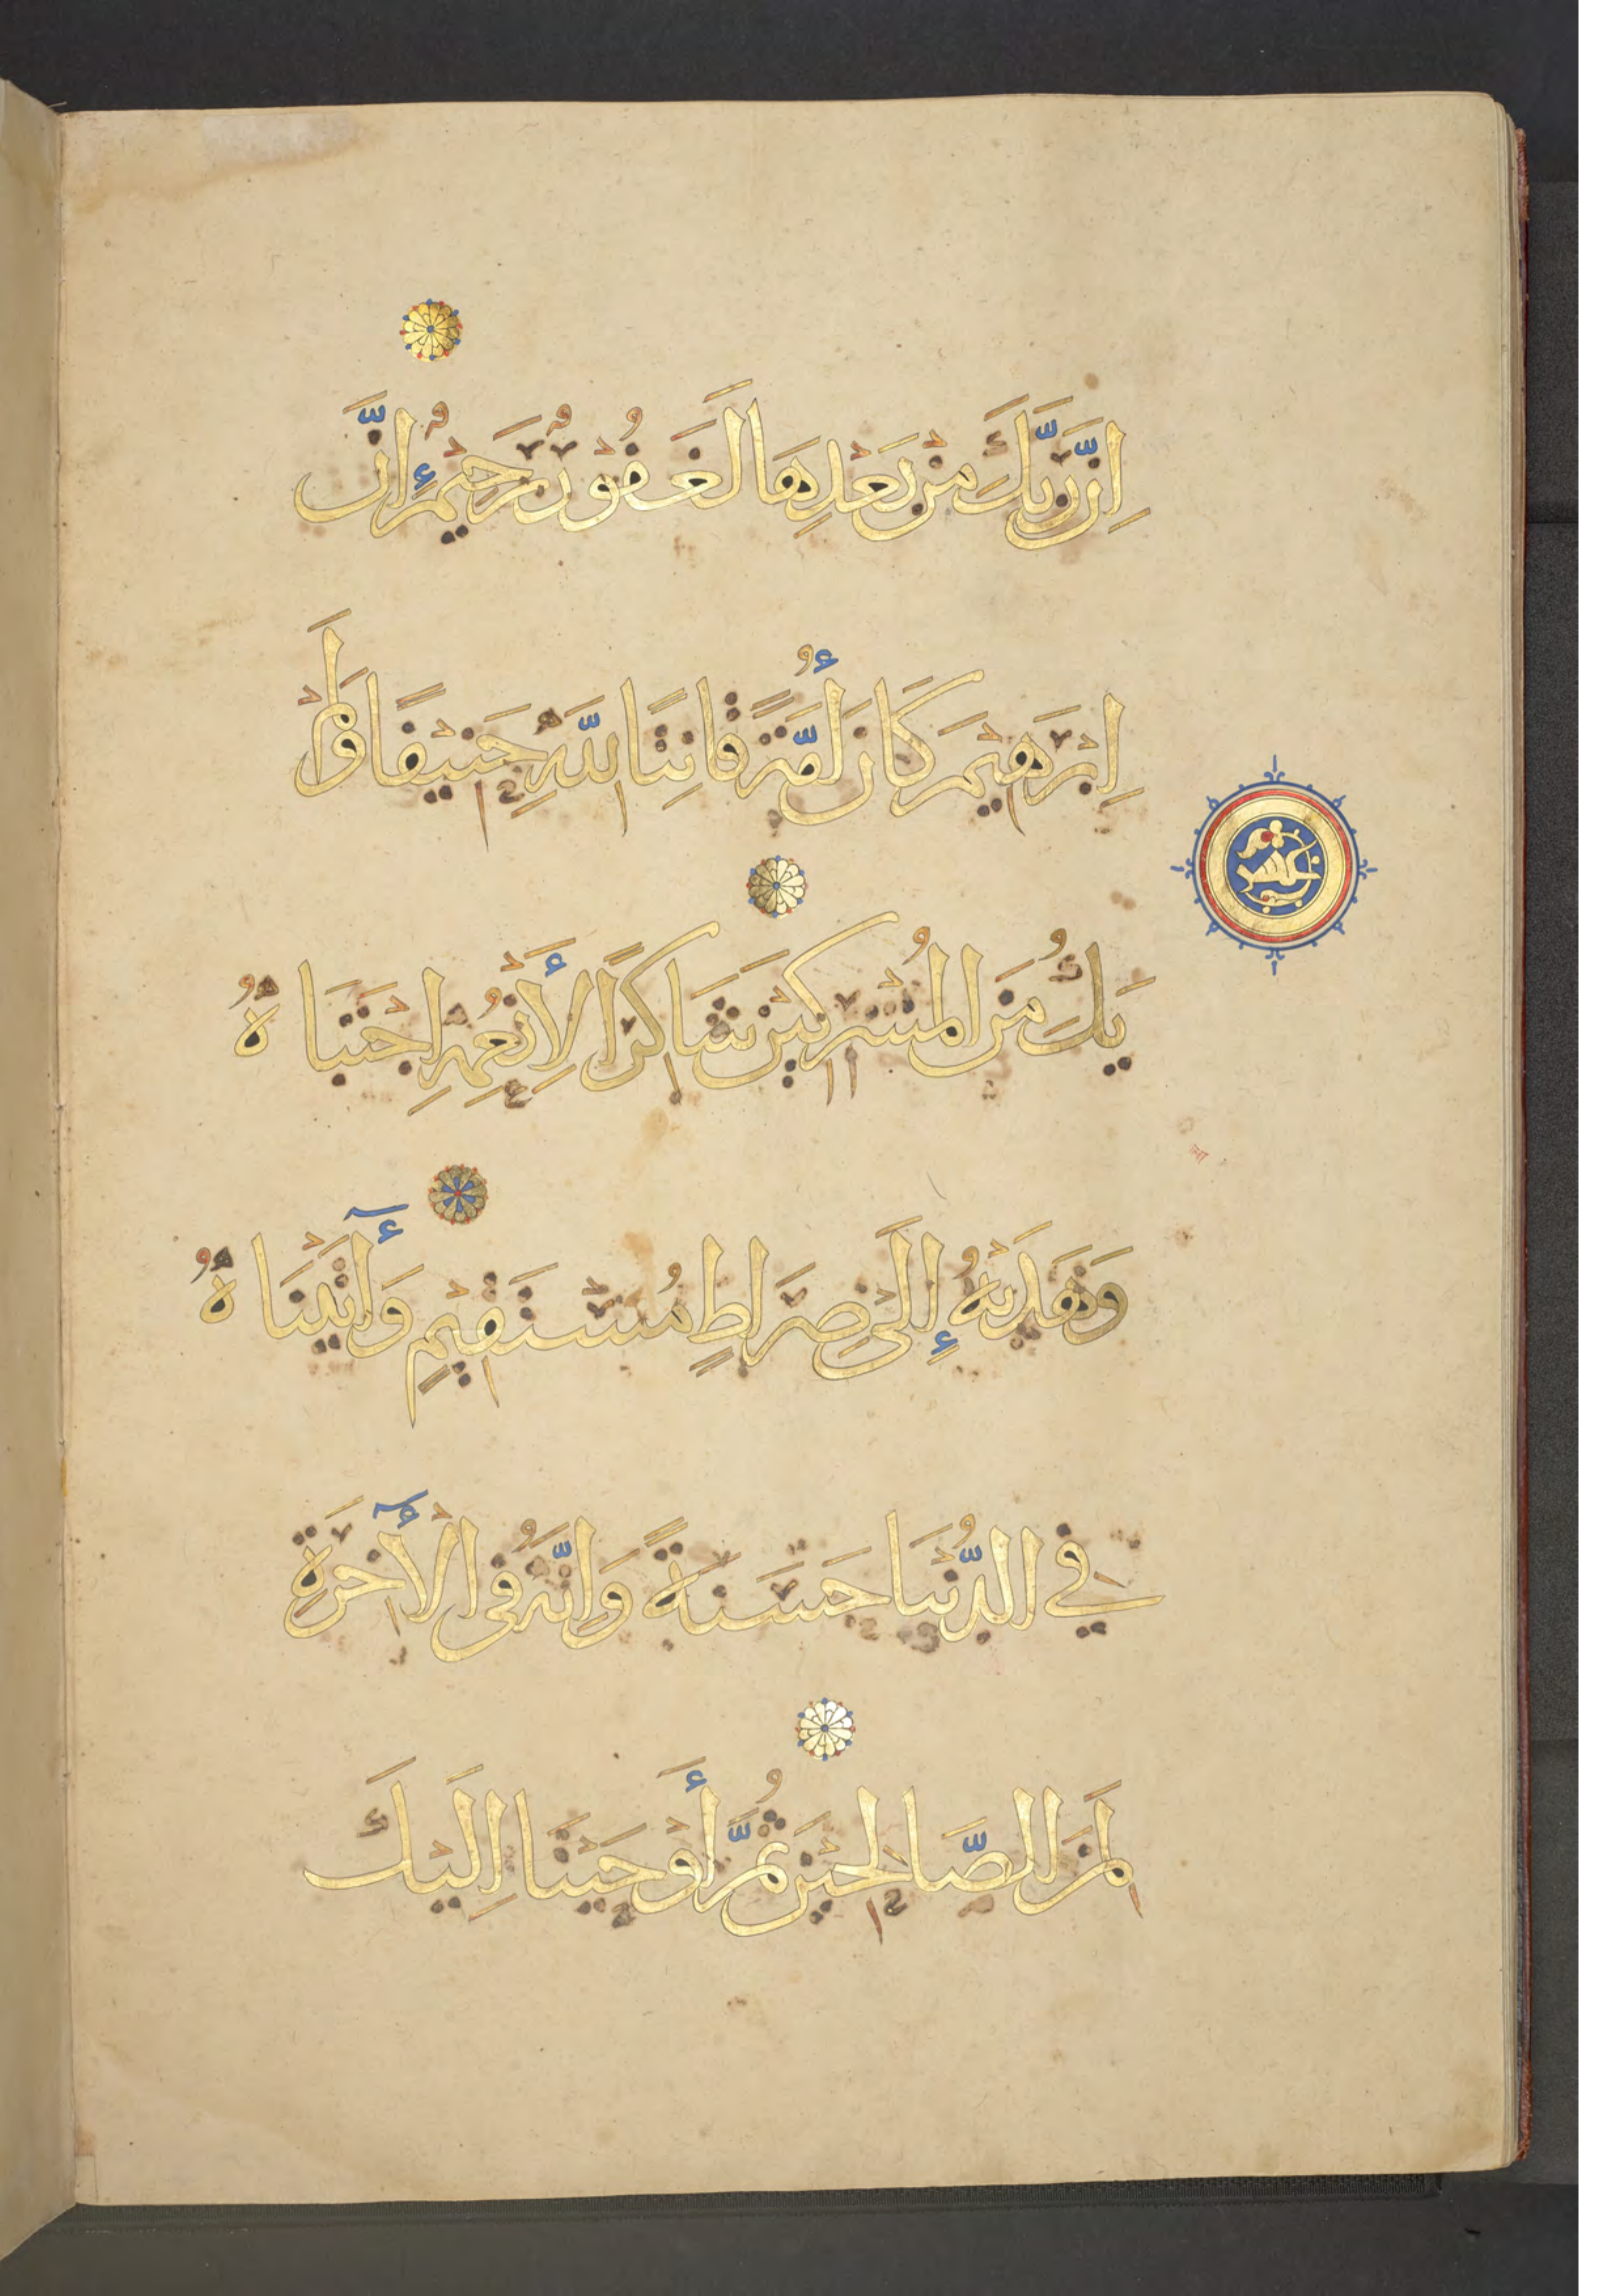 اِنَّ رَبَّكَ مِنْ بَعْدِهَا لَغَفُورٌ رَحِيْمٌ اِنَّ
اِبْرَهِيْمَ كَانَ أُمَّةً قَانِتًا لِلَّهِ حَنِيْفًا وَلَمْ
يَكُ مِنَ الْمُشْرِكِيْنَ شَاكِرًا لِأَنْعُمِهِ اجْتَبَاهُ
وَهَدَيهُ إِلَى صِرَاطٍ مُسْتَقِيْمٍ وَآتَيْنَاهُ
فِي الدُّنْيَا حَسَنَةً وَاِنَّهُ فِي الْآخِرَةِ
لَمِنَ الصَّالِحِيْنَ ثُمَّ أَوْحَيْنَا اِلَيْكَ
عشر